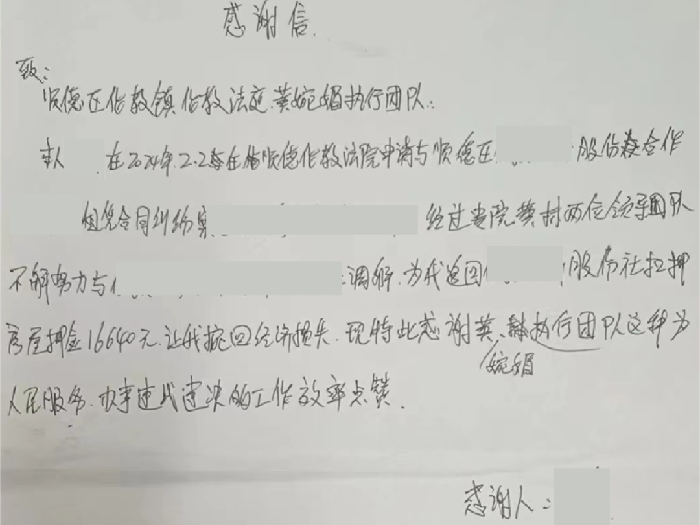 感谢信.
致:
顺德区伦教镇伦教法庭黄婉媚执行团队:
本人 在2024年2.2 在 顺德伦教法院申请与顺德区 股份 合作
租凭合同纠纷案 经过贵院黄村两位领导团队
不懈努力与 调解.为我追回 股份社扛押
房屋押金16640元.让我挽回经济损失.现特此感谢黄婉媚执行团队这种为
人民服务.办事速战速决的工作效率点赞.
感谢人: